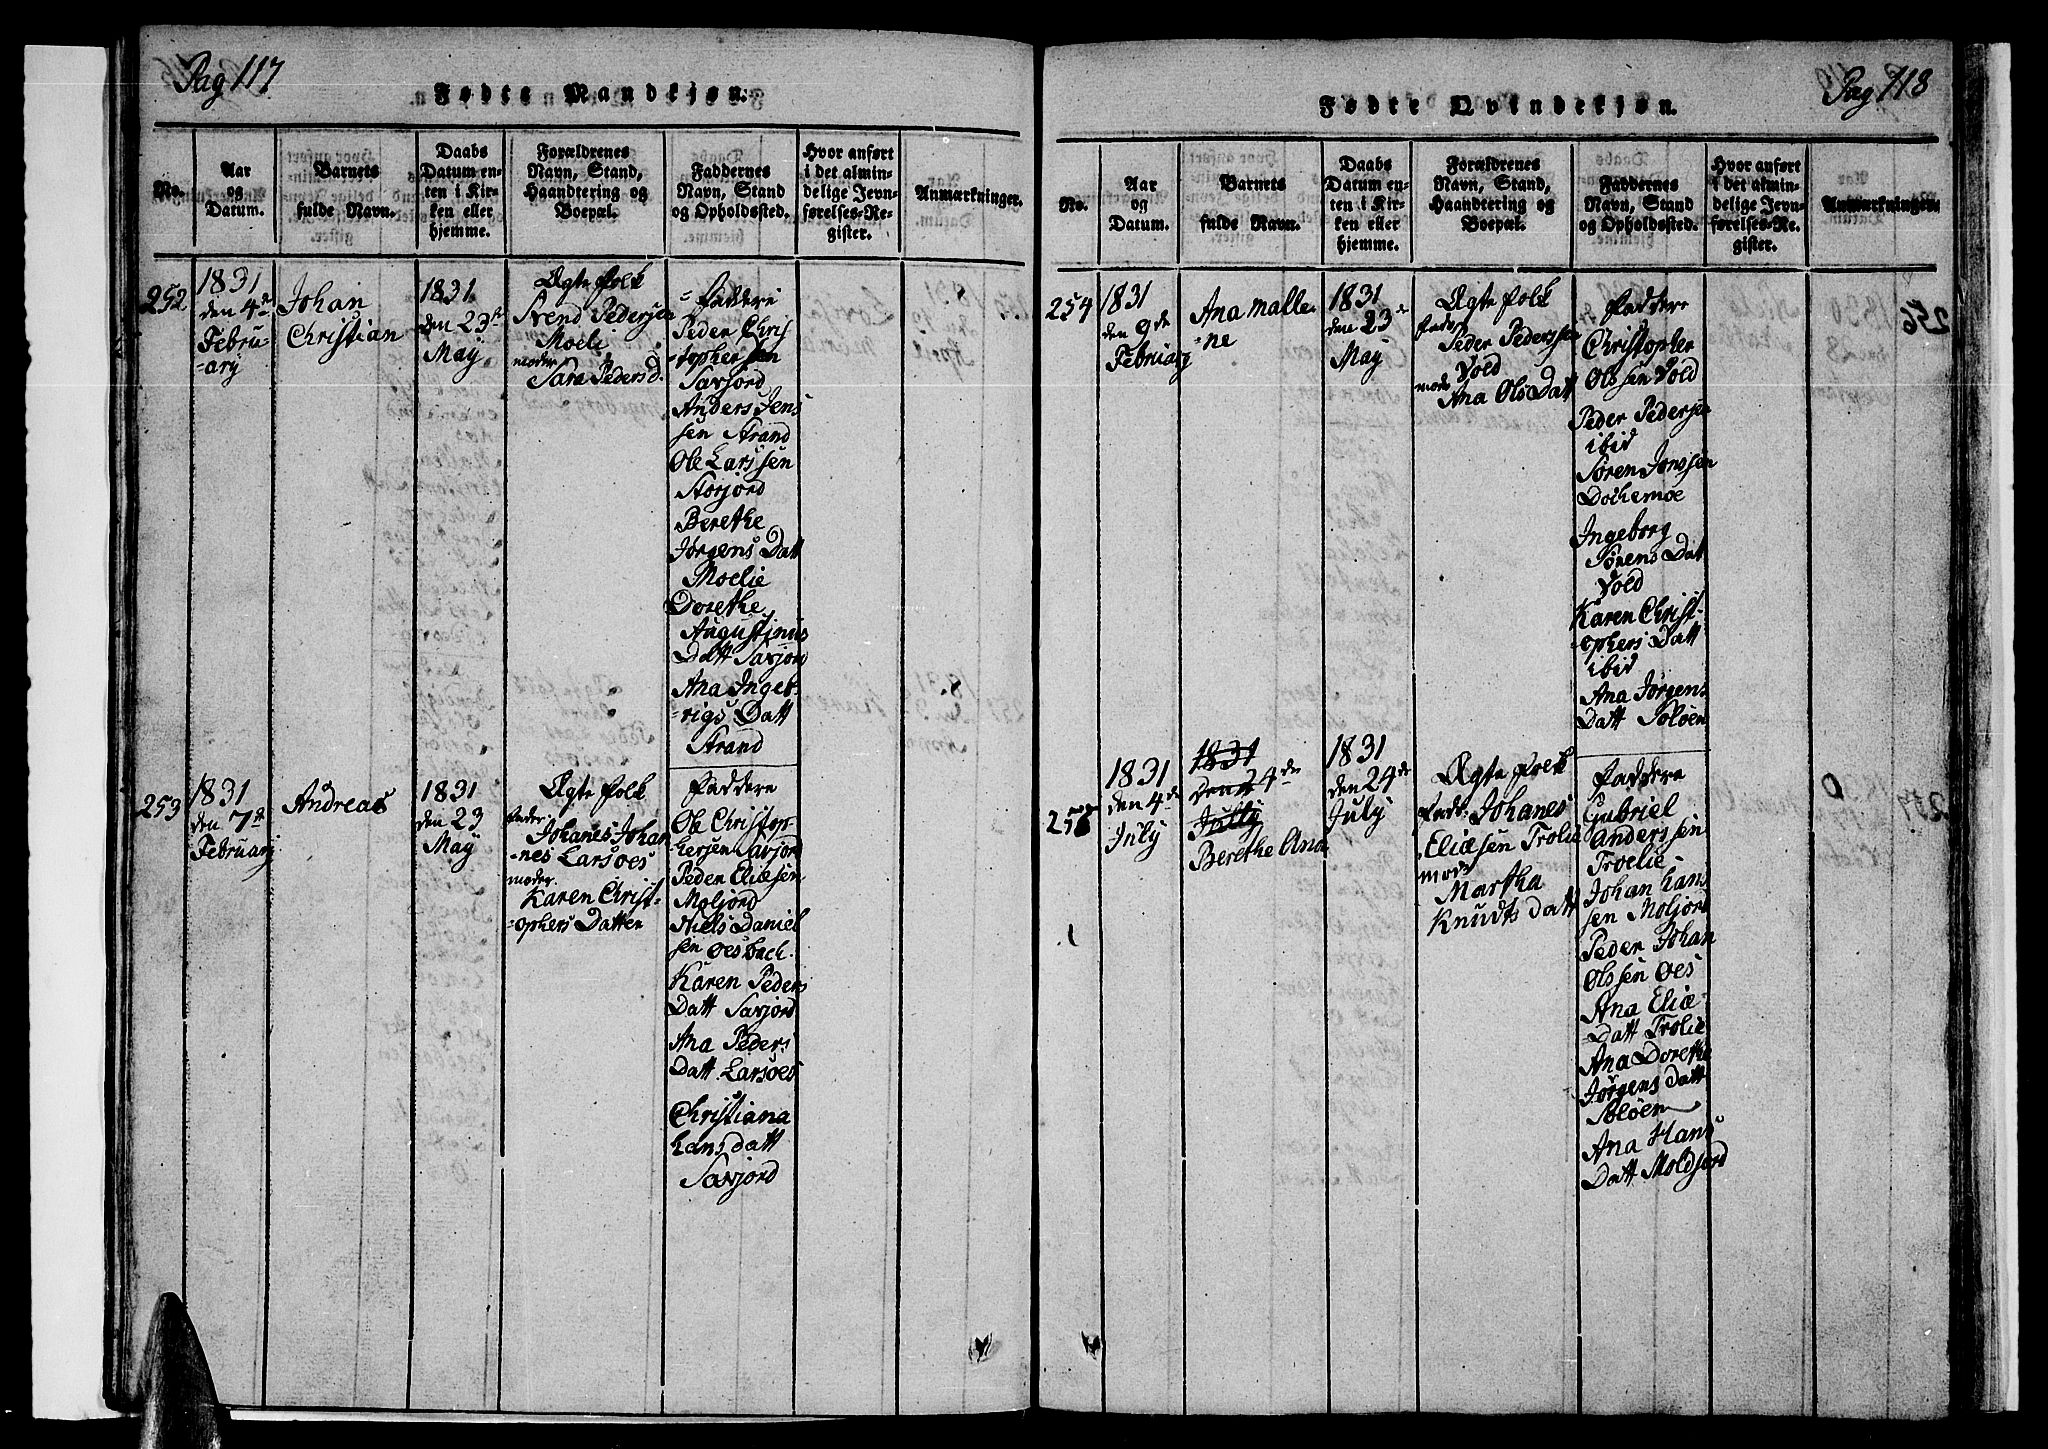 Pag 117
Fødte Mandkjøn.
No.
Aar
og
Datum.
Barnets
fulde Navn.
Daabs
Datum en-
ten i Kir-
ken eller
hjemme.
Forældrenes
Navn, Stand,
Haandtering og
Boepæl.
Faddernes
Navn, Stand
og Opholdssted.
Hvor anført
i det almin-
delige Jevn-
førelses-Re-
gister.
Anmærkninger.
252
1831
den 4de
Febru-
-ary
Johan
Christian
1831
den 23de
May
Ægte Folk
Svend Pedersen
Moeli
moder
Sara Pedersd.
Faddere
Peder Chris
topherssen
Savjord
Anders Jens
sen Strand
Ole Larssen
Storjord
Berethe
Jørgens Datt
Moelie
Dorethe
Augustinus
Datt Savjord
Ana Inge-
-rigs Datt
Strand
253
1831
den 7de
February
Andreas
1831
den 23
May
Ægte Folk
fader
Johanes Johan
-nes Larsoes
moder
Karen Christ-
-ophers Datter
Faddere
Ole Christop-
hersen Savjord
Peder Eliæsen
Moljord
Niels Daniel
sen Oesbach.
Karen Peders
Datt Savjord
Ana Peders
Datt. Larsoes
Christiana
Hans datt
Savjord
Pag 118
Fødte Qvindekjøn.
No.
Aar
og
Datum.
Barnets
fulde Navn.
Daabs
Datum en-
ten i Kir-
ken eller
hjemme.
Forældrenes
Navn, Stand,
Haandtering og
Boepæl.
Faddernes
Navn, Stand
og Opholdssted.
Hvor anført
i det almin-
delige Jevn-
førelses-Re-
gister.
Anmærkninger.
254
1831
den 9de
February
Ana Malle
-ne
1831
den 23de
May
Ægte Folk
fader
Peder Pederssen
Vold
moder
Ana Ols Datt
Faddere
Christopher
Olssen Vold
Peder Pedersen
ibid
Søren Jonssen
Dochemoe
Ingeborg
Sørens Datt
Vold
Karen Christ-
ophers Datt
ibid
Ana Jørgens
Datt Soløen
255
1831
den 4de
July
1831
den 24de
July
Berethe Ana
1831
den 24de
July
Ægte Folk
Fader Johanes
Eliæsen Trolie
mod
Martha
Knudts Datt
Faddere
Gabriel
Anderssen
Troelie
Johan Hans
sen Moljord
Peder Johan
Olssen Oes
Ana Eliæ-
Datt Trolie
Ana Dorethe
Jørgens Datt
Soløen
Ana Hans
Datt Moldjord
256